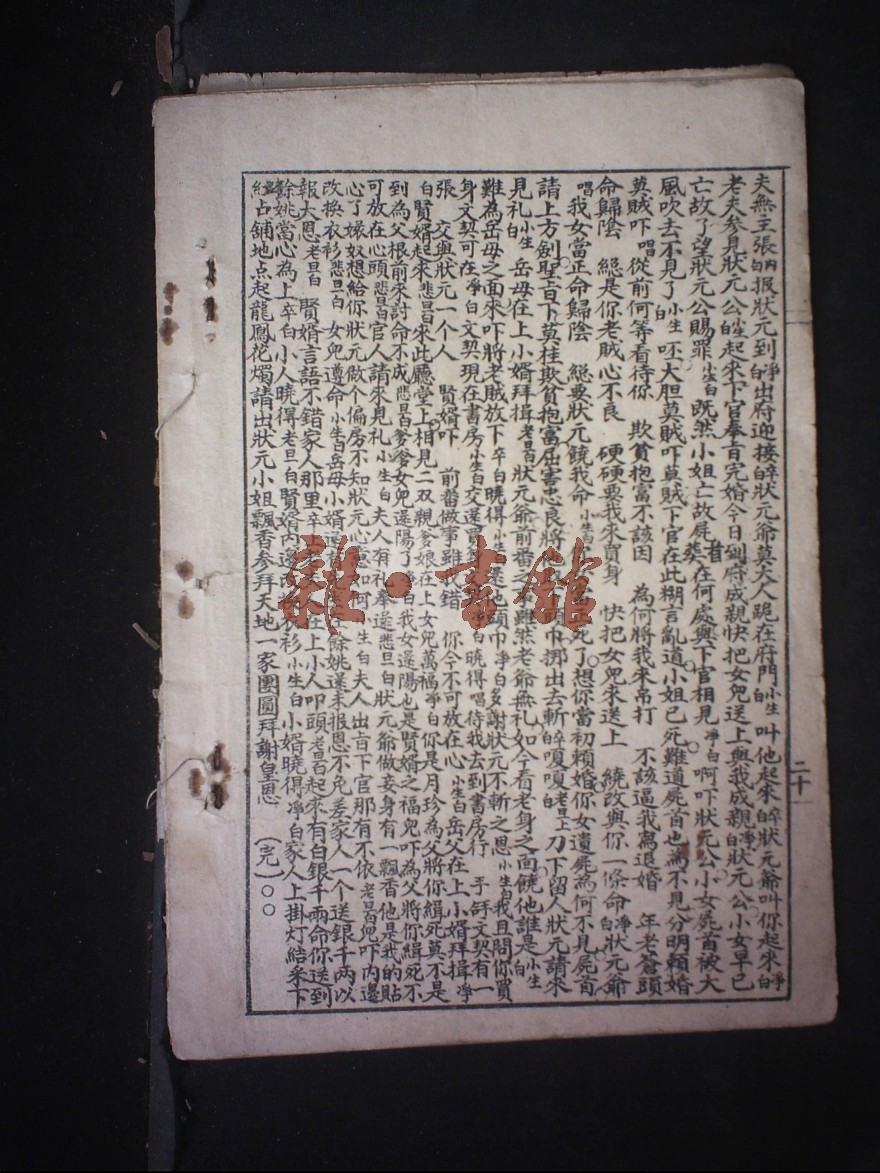 夫無主張內白报狀元到淨白出府迎接卒白狀元爺莫大人跪在府門小生白叫他起來卒白狀元爺叫你起來淨白
老夫參見狀元公生白起來下官奉旨完婚今日到府成親快把女兒送上與我成親淨白狀元公小女早已
亡故了望狀元公賜罪小生白既然小姐亡故屍首葬在何處與下官相見淨白啊吓狀元公小女屍首被大
風吹去不見了小生白呸大胆莫賊吓莫賊下官在此糊言亂道小姐已死難道屍首也為不見分明賴婚
莫賊吓 唱從前何等看待你 欺貧抱富不該因 為何將我來吊打 不該逼我寫退婚 年老蒼頭
命歸陰 總是你老賊心不良 硬硬要我來賣身 快把女兒來送上 繞改與你一條命淨白狀元爺
唱我女當正命歸陰 總要狀元饒我命小生白 死了想你當初賴婚你女遺屍為何不見屍首
請上方劍聖旨下莫柱欺貧抱富屈害忠良將他 頭巾挷出去斬卒白嗄嗄白老旦上刀下留人狀元請來
見礼小生白岳母在上小婿拜揖老旦白狀元爺前番之事雖然老爺無礼如今看老身之面饒他誰是小生白
難為岳母之面來吓將老賊放下卒白曉得小生 他頭巾淨白多謝狀元不斬之恩小生白我且問你買
身文契可在淨白文契現在書房小生白交還 白曉得唱待我去到書房行 手𢪃文契有一
張 交與狀元一個人 賢婿吓 前番做事雖我錯 你今不可放在心小生白岳父在上小婿拜揖淨
白賢婿起來悲旦白來此廳堂上相見二双親爹娘在上女兒萬福淨白你是月珍為父將你緝死莫不是
到為父根前來討命不成悲旦白爹爹女兒還陽了淨白我女還陽也是賢婿之福兒吓為父將你緝死不
可放在心頭悲旦白官人請來見礼小生白夫人有礼奉送悲旦白狀元爺做妾身有一飄香他是我的貼
心了㛐奴想給你狀元做個偏房不知狀元心意如何小生白夫人出言下官那有不依老旦白兒吓內邊
改換衣衫悲旦白女兒遵命小生白岳母小婿還有 餘姚還未报恩不免差家人一個送銀千两以
報大恩老旦白 賢婿言語不錯家人那里卒白 在上小人叩頭老旦白起來有白銀千兩命你送到
餘姚當心為上卒白小人曉得老旦白賢婿內邊改換衣衫小生白小婿曉得淨白家人上掛灯結采下
紅占舖地点起龍鳳花燭請出狀元小姐飄香參拜天地一家團圓拜謝皇恩 (完)○○
二十
雜·書館